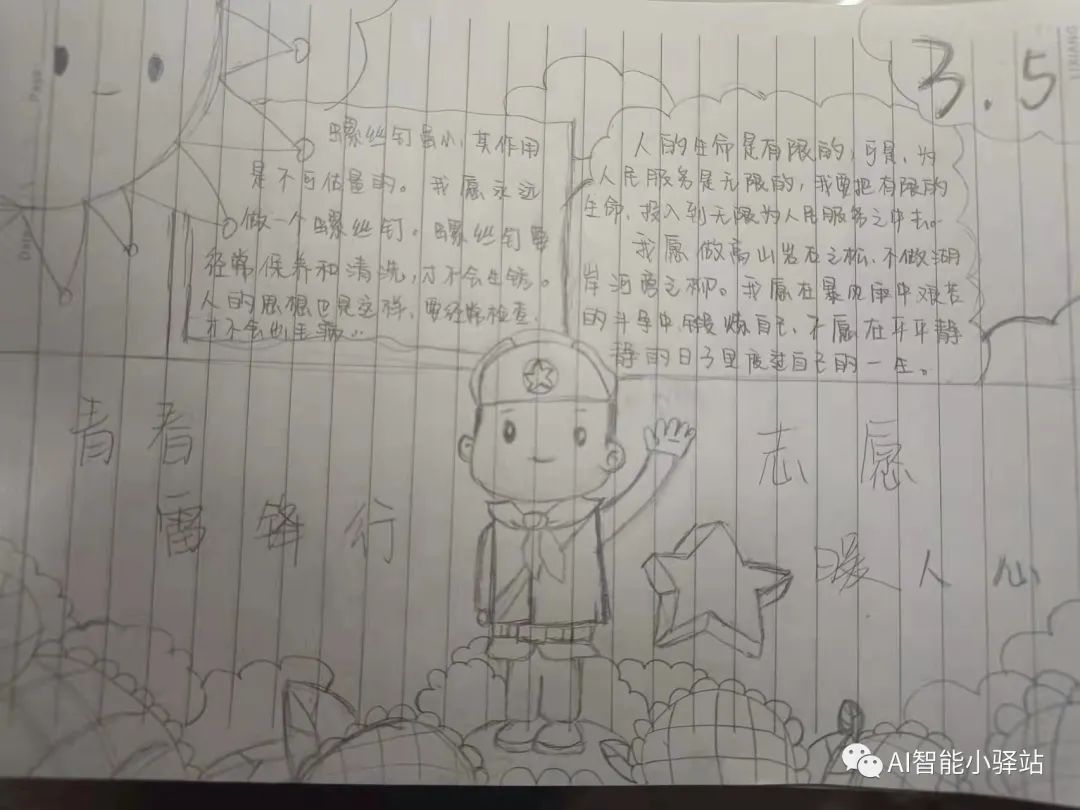 3.5
螺丝钉虽小,其作用
是不可估量的。我愿永远
做一个螺丝钉。螺丝钉要
经常保养和清洗,才不会生锈。
人的思想也是这样,要经常检查,
才不会出毛病…
人的生命是有限的,可是,为
人民服务是无限的,我要把有限的
生命,投入到无限为人民服务之中去。
我愿做高山岩石之松,不做湖
岸河旁之柳。我愿在暴风雨中艰苦
的斗争中锻炼自己,不愿在平平静
静的日子里度过自己的一生。
青春
雷锋行
志愿
暖人心
AI智能小驿站